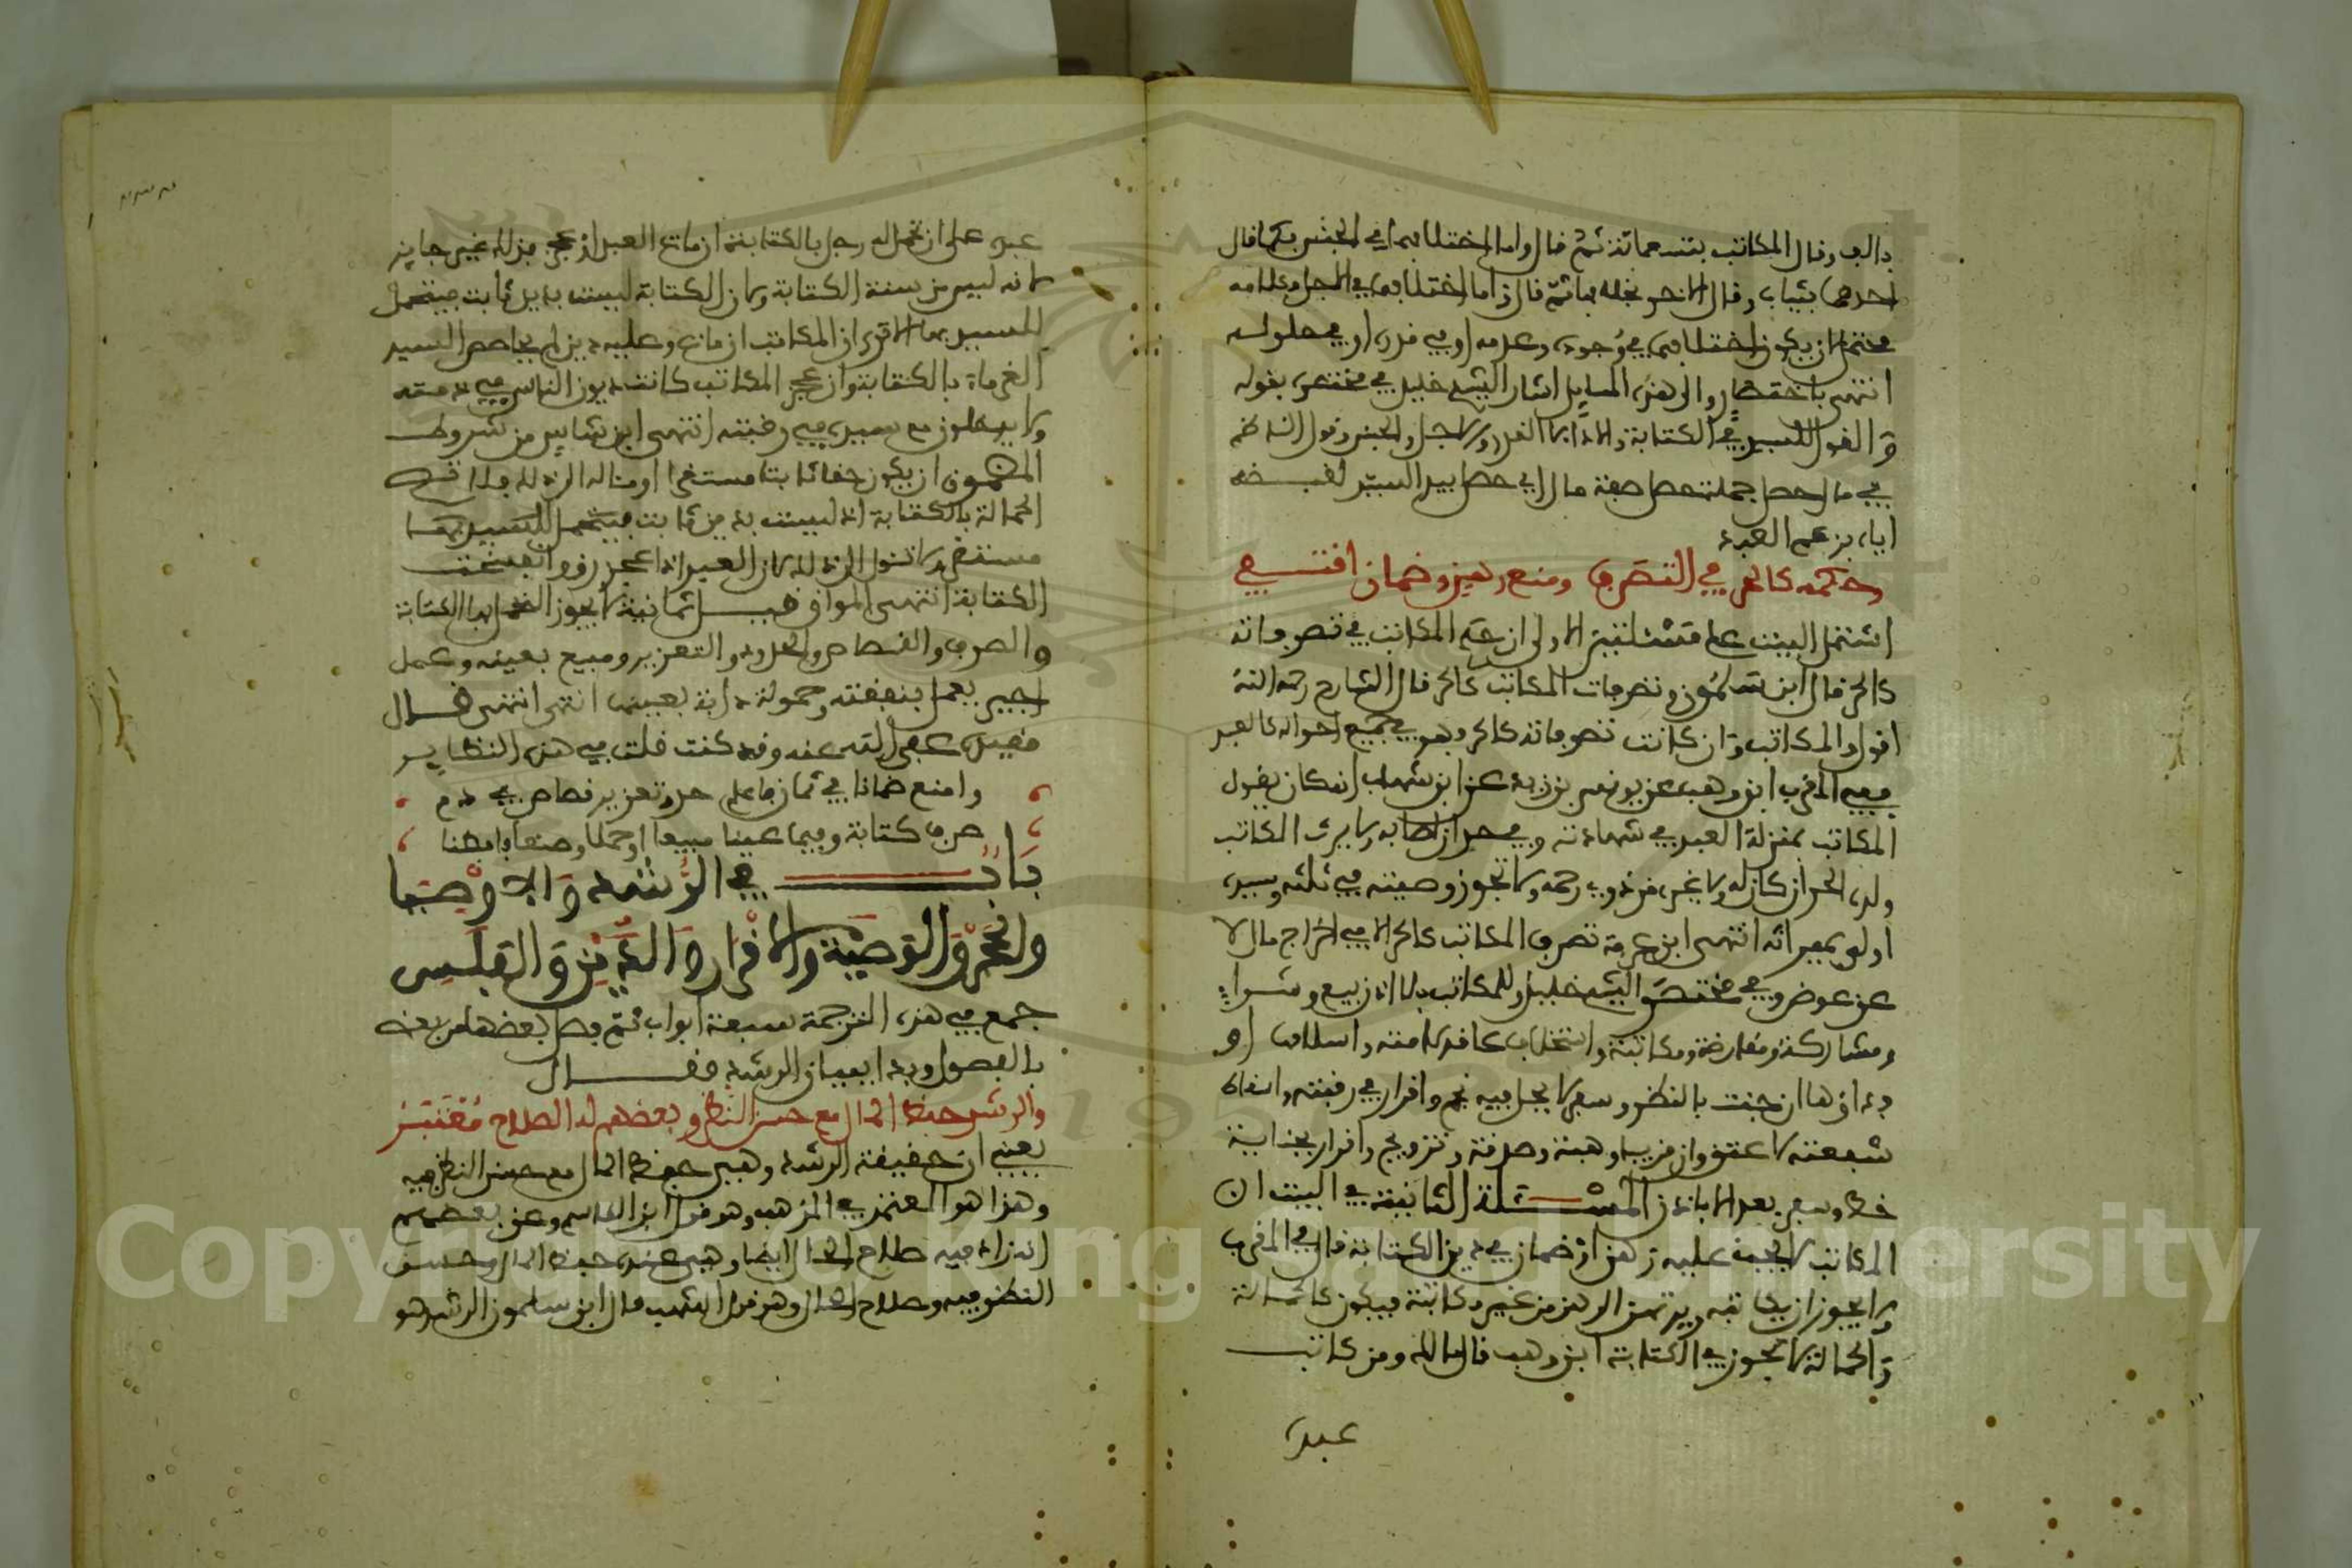 بألف وقال المكاتب بتسعمائة ثم قال وأما اختلافهما في الجنس فكما قال
أحدهما بثياب وقال الآخر بخلافها ثم قال وأما اختلافهما في الأجل وعدمه
فيحتمل أن يكون اختلافهما في وجوده وعدمه أو في قدره أو في حلوله
انتهى باختصار وإلى هذه المسايل أشار الشيخ خليل في مختصره بقوله
والقول للسيد في الكتابة والأداء لا القدر والأجل والجنس وقول الناظم
في مال حصل جملة حصل صفة مال أي حصل بيد السيد لقبضه
إياه بزعم العبد
وحكمه كالحر في التصرف ومنع رهن وضمان اقتفي
اشتمل البيت على مسئلتين الأولى أن حكم المكاتب في تصرفاته
كالحر قال ابن سلمون وتصرفات المكاتب كالحر قال الشارح رحمه الله
أقول والمكاتب وإن كانت تصرفاته كالحر فهو في جميع أحواله كالعبد
ففي المقرب ابن وهب عن يونس بن يزيد عن ابن شهاب أنه كان يقول
المكاتب بمنزلة العبد في شهادته وفي حد إن أصابه ولا يرث المكاتب
ولده الحر إن كان له ولا غيره من ذوي رحمه ولا تجوز وصيته في ثلثه وسيده
أولى بميراثه انتهى ابن عرفة تصرف المكاتب كالحر إلا في إخراج مال لا
عن عوض وفي مختصر الشيخ خليل وللمكاتب بلا إذن بيع وشراء
ومشاركة ومقارضة ومكاتبة واستخلاف عاقد لأمته وإسلامها أو
فداؤها إن جنت بالنظر وسفر لا يحل فيه نجم وإقرار في رقبته وإسقاط
شفعته لا عتق وإن قريبا وهبة وصدقة وتزويج وإقرار بجناية
خطأ وسفر بعد إلا بإذن المسئلة الثانية في البيت أن
المكاتب لا يجوز عليه رهن أو ضمان في دين الكتابة قال في المقرب
ولا يجوز أن يكاتبه ويرتهن الرهن من غير مكاتبه فيكون كالحمالة
والحمالة لا تجوز في الكتابة ابن وهب قال مالك ومن كاتب
عبده
عبده على أن تحمل له رجل بالكتابة إن مات العبد أو عجز فذلك غير جايز
لأنه ليس من سنة الكتابة ولأن الكتابة ليست بدين ثابت فيتحمل
للسيد بها ألا ترى أن المكاتب إن مات وعليه دين لم يحاصص السيد
الغرماء بالكتابة وإن عجز المكاتب كانت ديون الناس في ذمته
ولا يدخلون مع سيده في رقبته انتهى ابن شاس من شروط
المضمون أن يكون حقا ثابتا مستقرا أو مئاله إلى ذلك فلا تصح
الحمالة بالكتابة إذ ليست بدين ثابت فيتحمل للسيد بها
مستقر ولا تئول إلى ذلك لأن العبد إذا عجز رق وانفسخت
الكتابة انتهى المواق قيل ثمانية لا يجوز التحمل بها الكتابة
والصرف والقصاص والحدود والتعزير ومبيع بعينه وعمل
أجير يعمل بنفسه وحمولة دابة بعينها انتهى انتهى قال
مقيده عفى الله عنه وقد كنت قلت في هذه النظاير
وامنع ضمانا في ثمان فاعلم حد وتعزير قصاص في دم
صرف كتابة وفيما عينا مبيعا أو حملا وصنعا فافطنا
باب في الرشد والأوصيا
والحجر والوصية والإقرار والدين والفلس
جمع في هذه الترجمة سبعة أبواب ثم فصل بعضها من بعض
بالفصول وبدأ ببيان الرشد فقال
والرشد حفظ المال مع حسن النظر وبعضهم له الصلاح معتبر
يعني أن حقيقة الرشد وهي حفظ المال مع حسن النظر فيه
وهذا هو المعتمد في المذهب وهو قول ابن القاسم وعن بعضهم
أنه زاد فيه صلاح الحال أيضا وهي عنده حفظ المال وحسن
النظر فيه وصلاح الحال وهو قول أشهب قال ابن سلمون الرشد هو
Copyright © King Saud University
1957